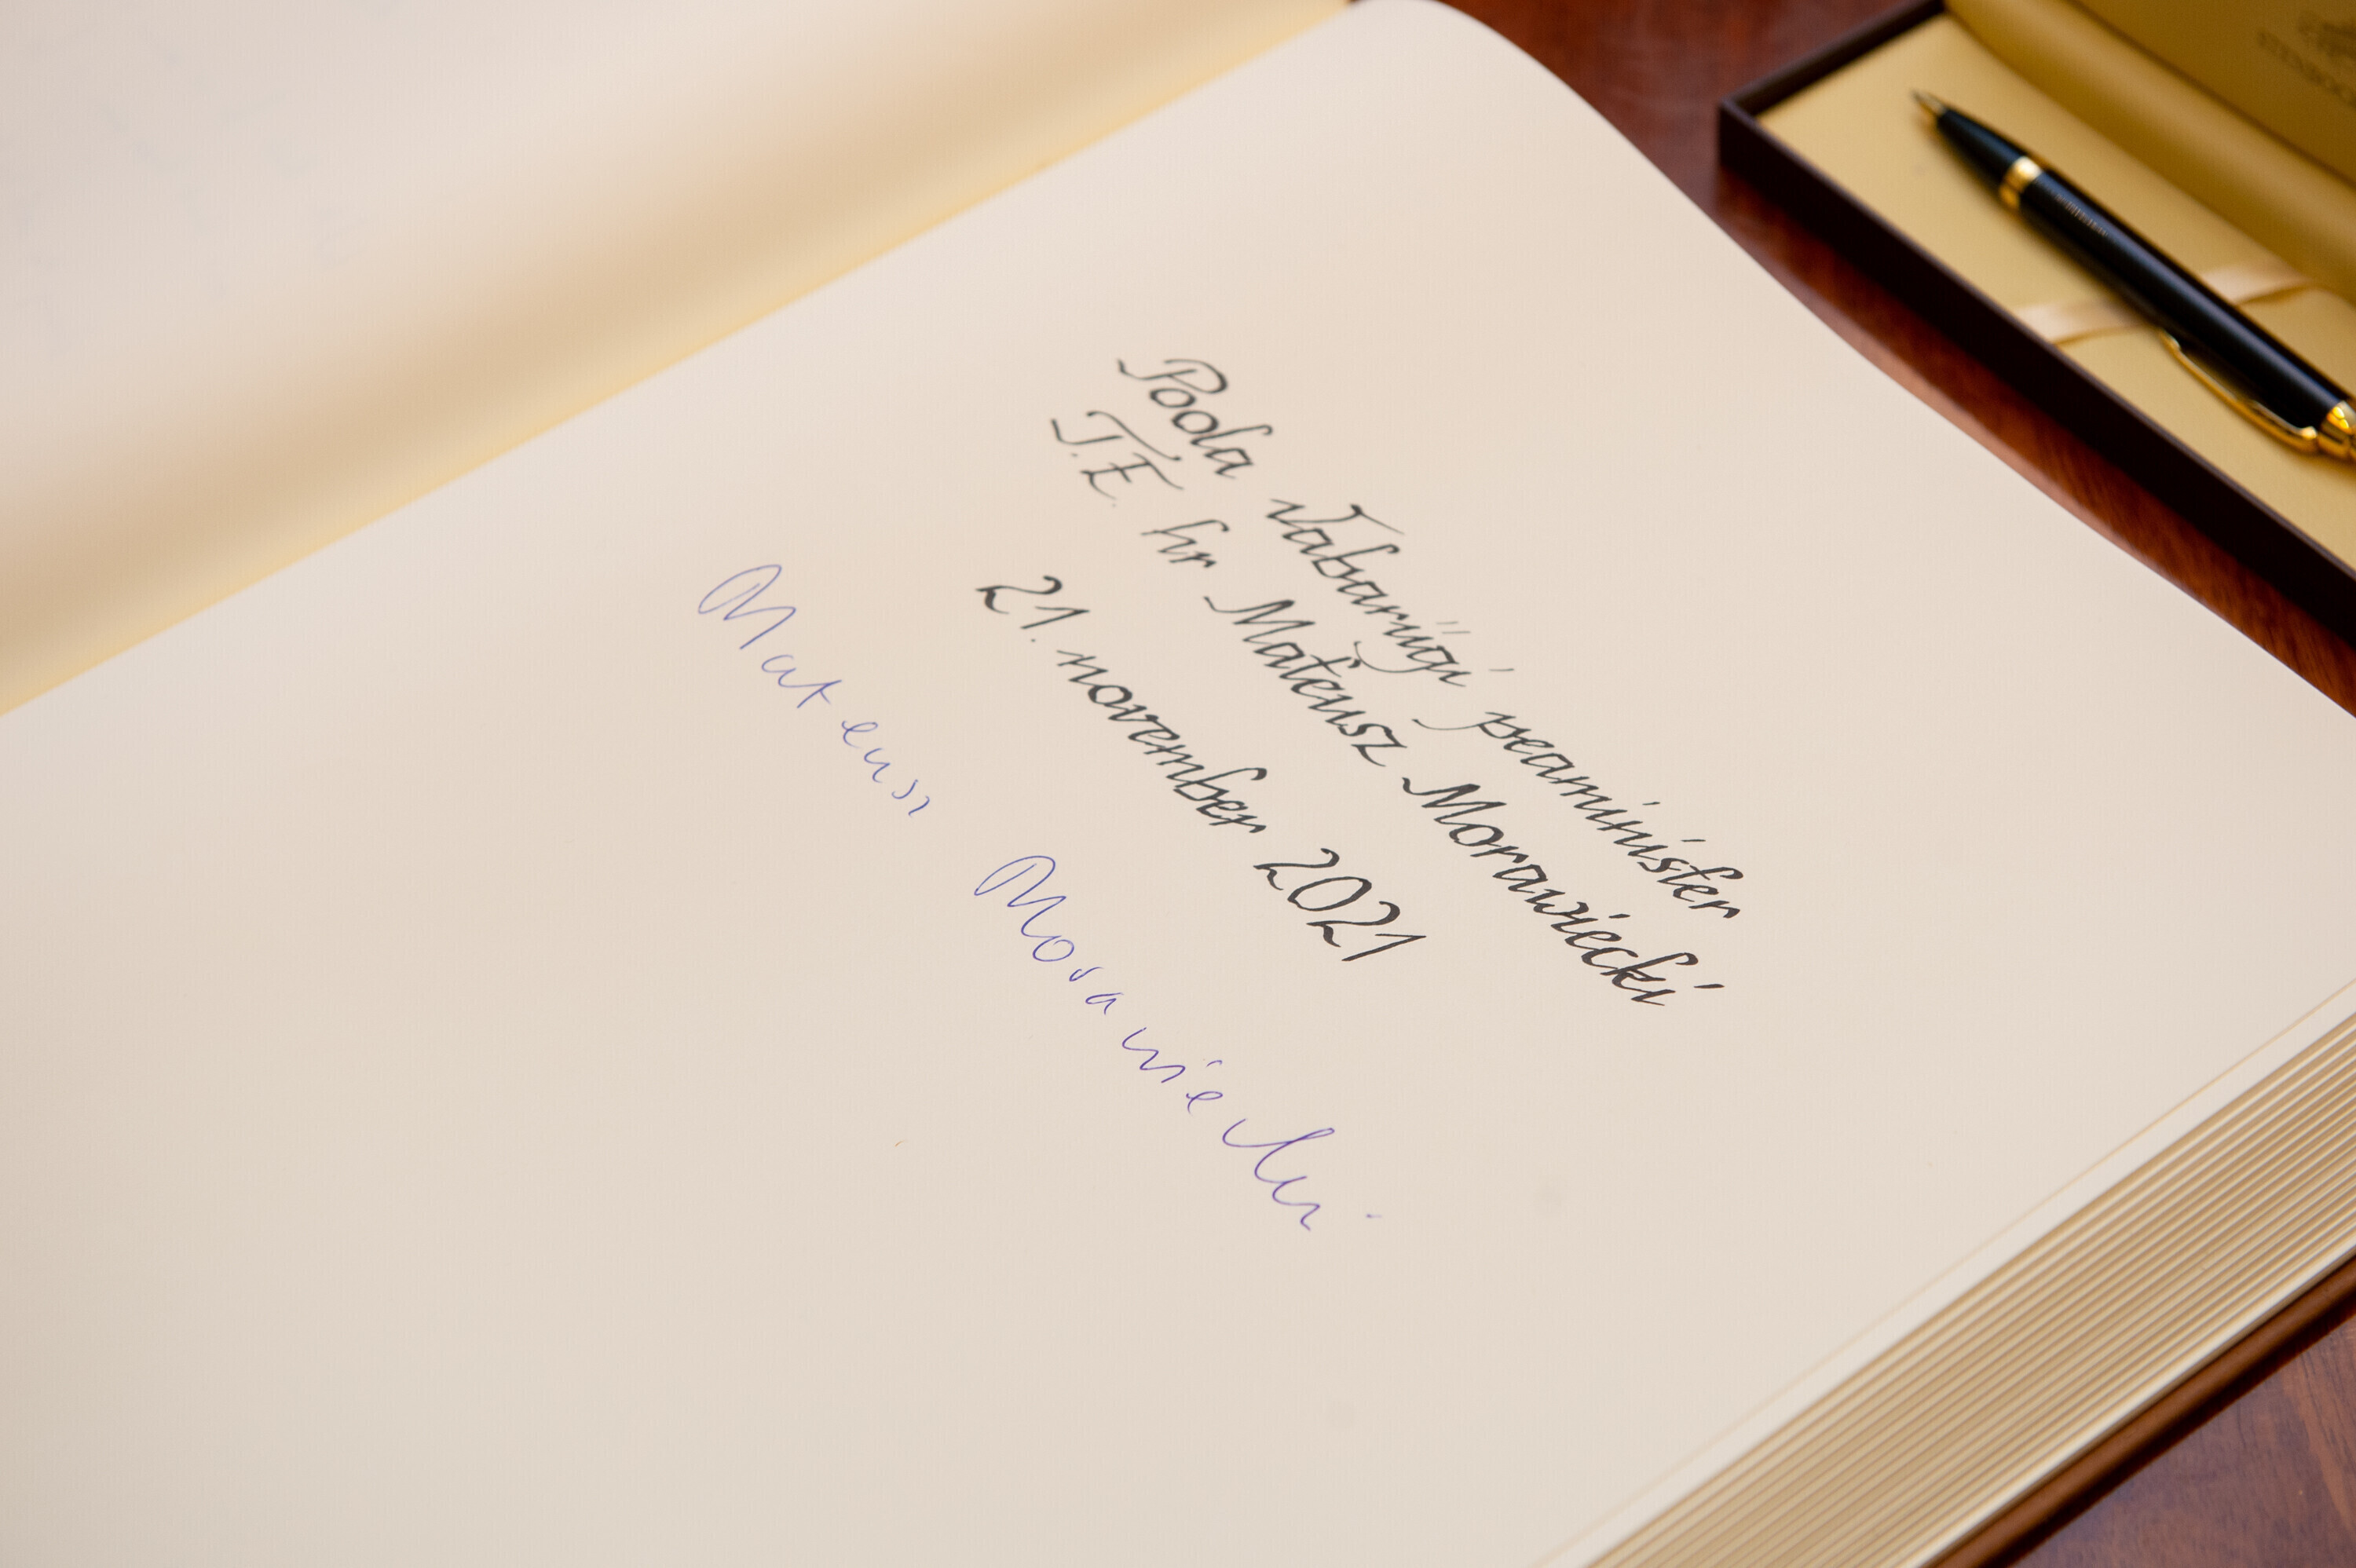 Poola Vabariigi peaminister
T.E. hr Mateusz Morawiecki
21. november 2021
Mateusz Morawiecki